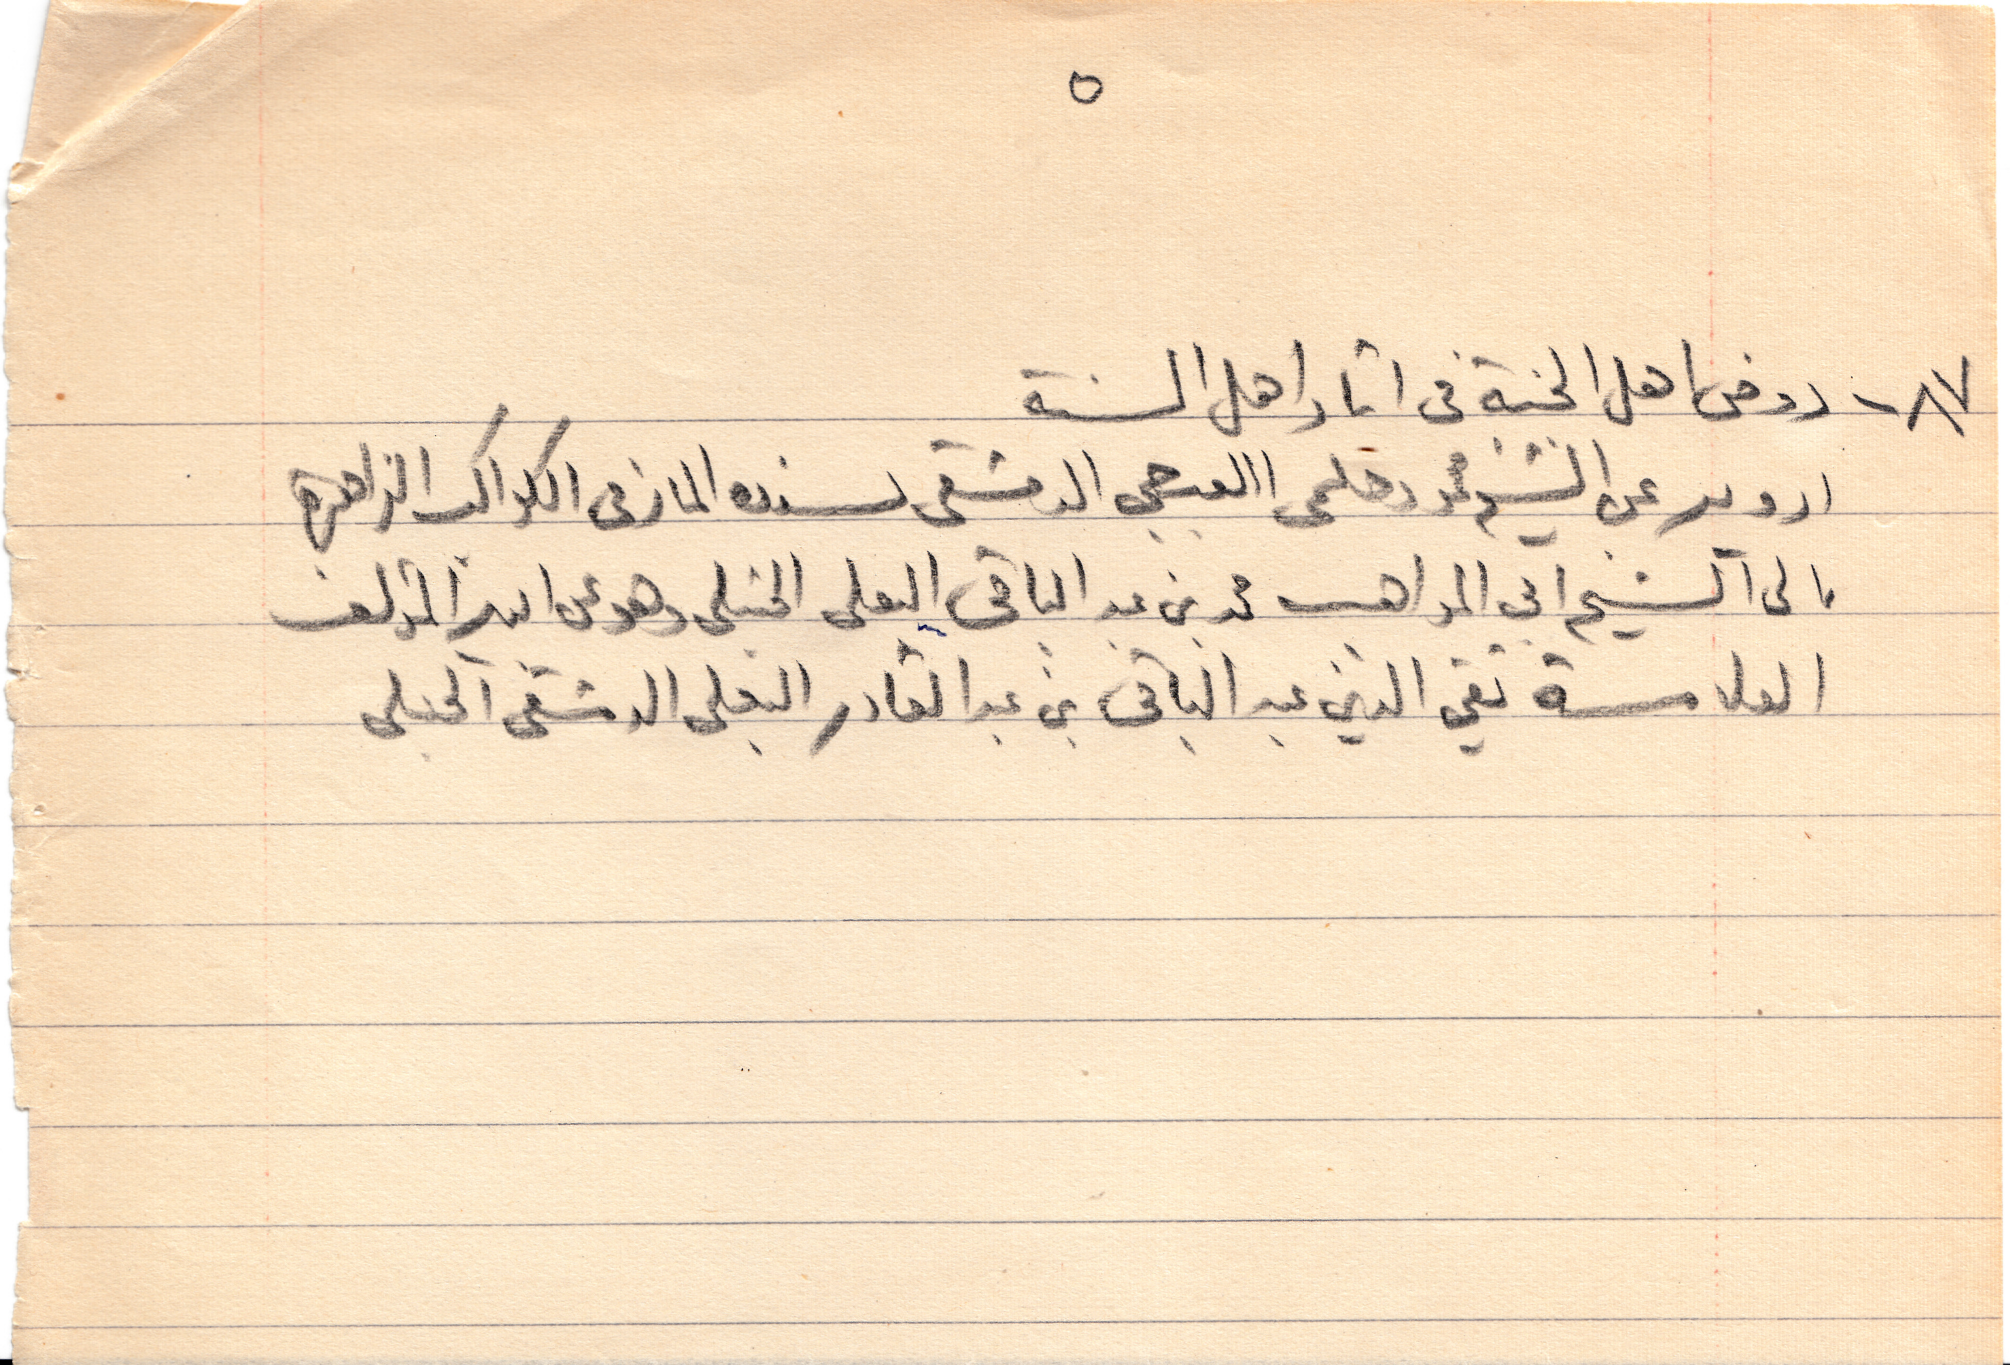 ٥
٨٧ - روض اهل الجنة فى اثار اهل السنة
ارويه عن الشيخ محمود حلمى الدمشقى بسنده المار فى الكواكب الزاهرة
الى الشيخ ابي المواهب محمد بن عبد الباقى البعلى الحنبلى وهو عن ابيه المؤلف
العلامة تقي الدين عبد الباقى بن عبد القادر البعلى الدمشقى الحنبلى